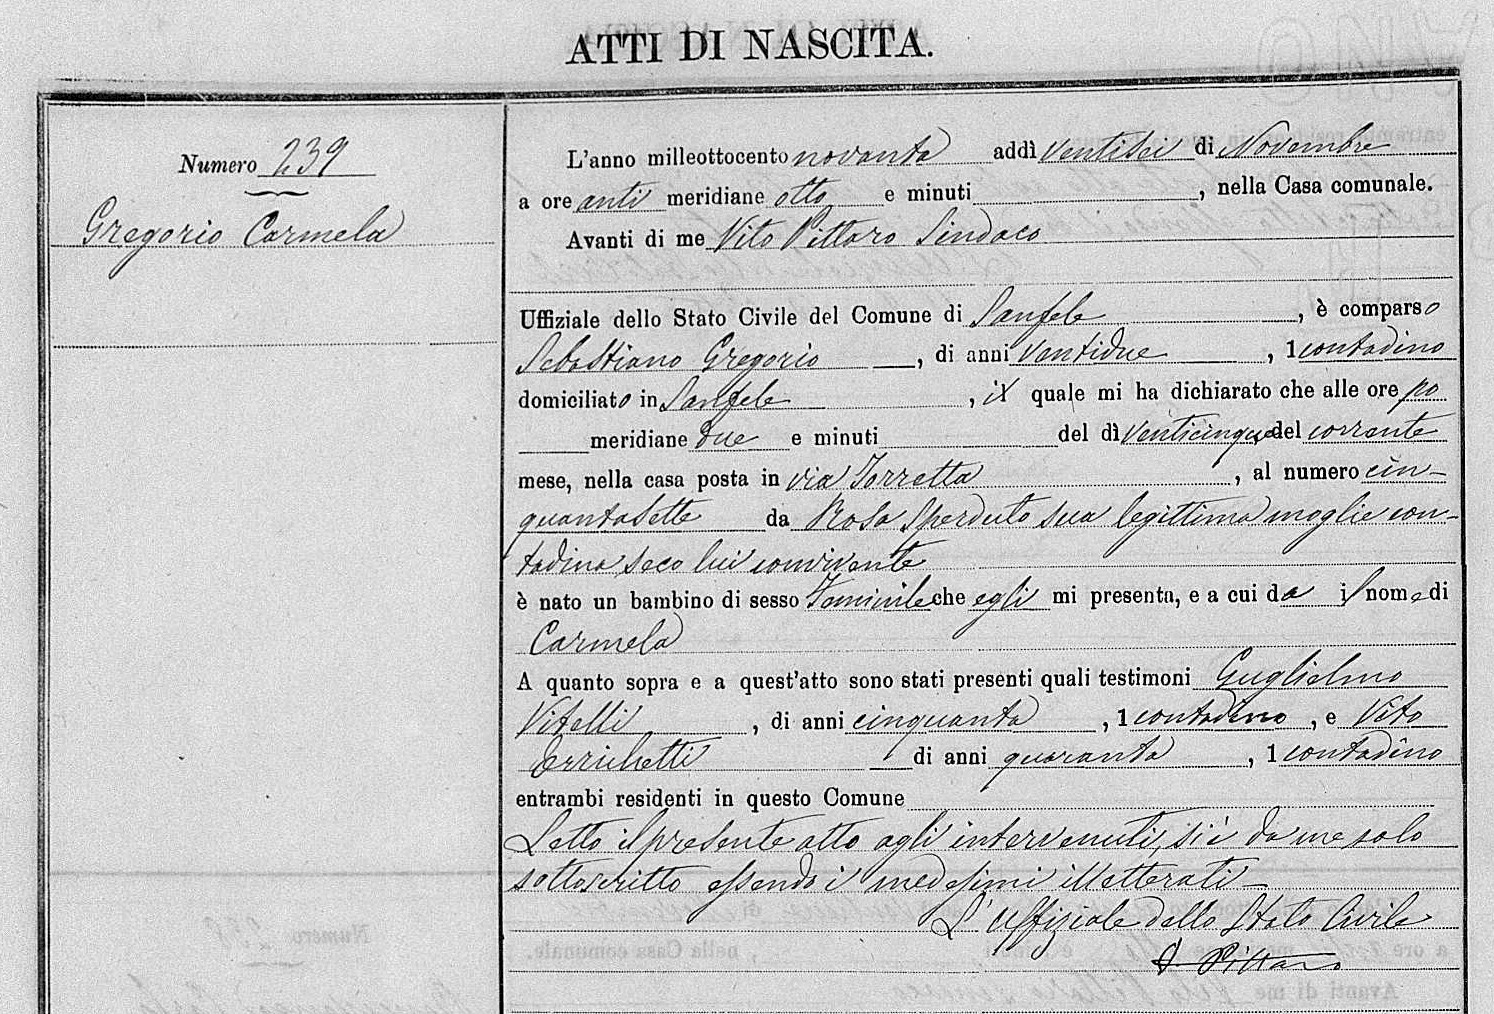 ATTI DI NASCITA.
Numero 239
Gregorio Carmela
L'anno milleottocento novanta addì ventisei di Novembre
a ore anti meridiane otto e minuti , nella Casa comunale.
Avanti di me Vito Pittaro Sindaco
Uffiziale dello Stato Civile del Comune di Sanfele , è comparso
Sebastiano Gregorio , di anni ventidue , contadino
domiciliato in Sanfele , il quale mi ha dichiarato che alle ore po
meridiane due e minuti del dì venticinque del corrente
mese, nella casa posta in via Torretta , al numero cin-
quantasette da Rosa Sperduto sua legittima moglie con-
tadina, seco lui convivente
è nato un bambino di sesso feminile che egli mi presenta, e a cui da il nome di
Carmela
A quanto sopra e a quest'atto sono stati presenti quali testimoni Guglielmo
Vitelli , di anni cinquanta , contadino , e Vito
Errichetti di anni quaranta , contadino
entrambi residenti in questo Comune
Letto il presente atto agli intervenuti, si è da me solo
sottoscritto essendo i medesimi illetterati -
L'Uffiziale dello Stato Civile
V. Pittaro